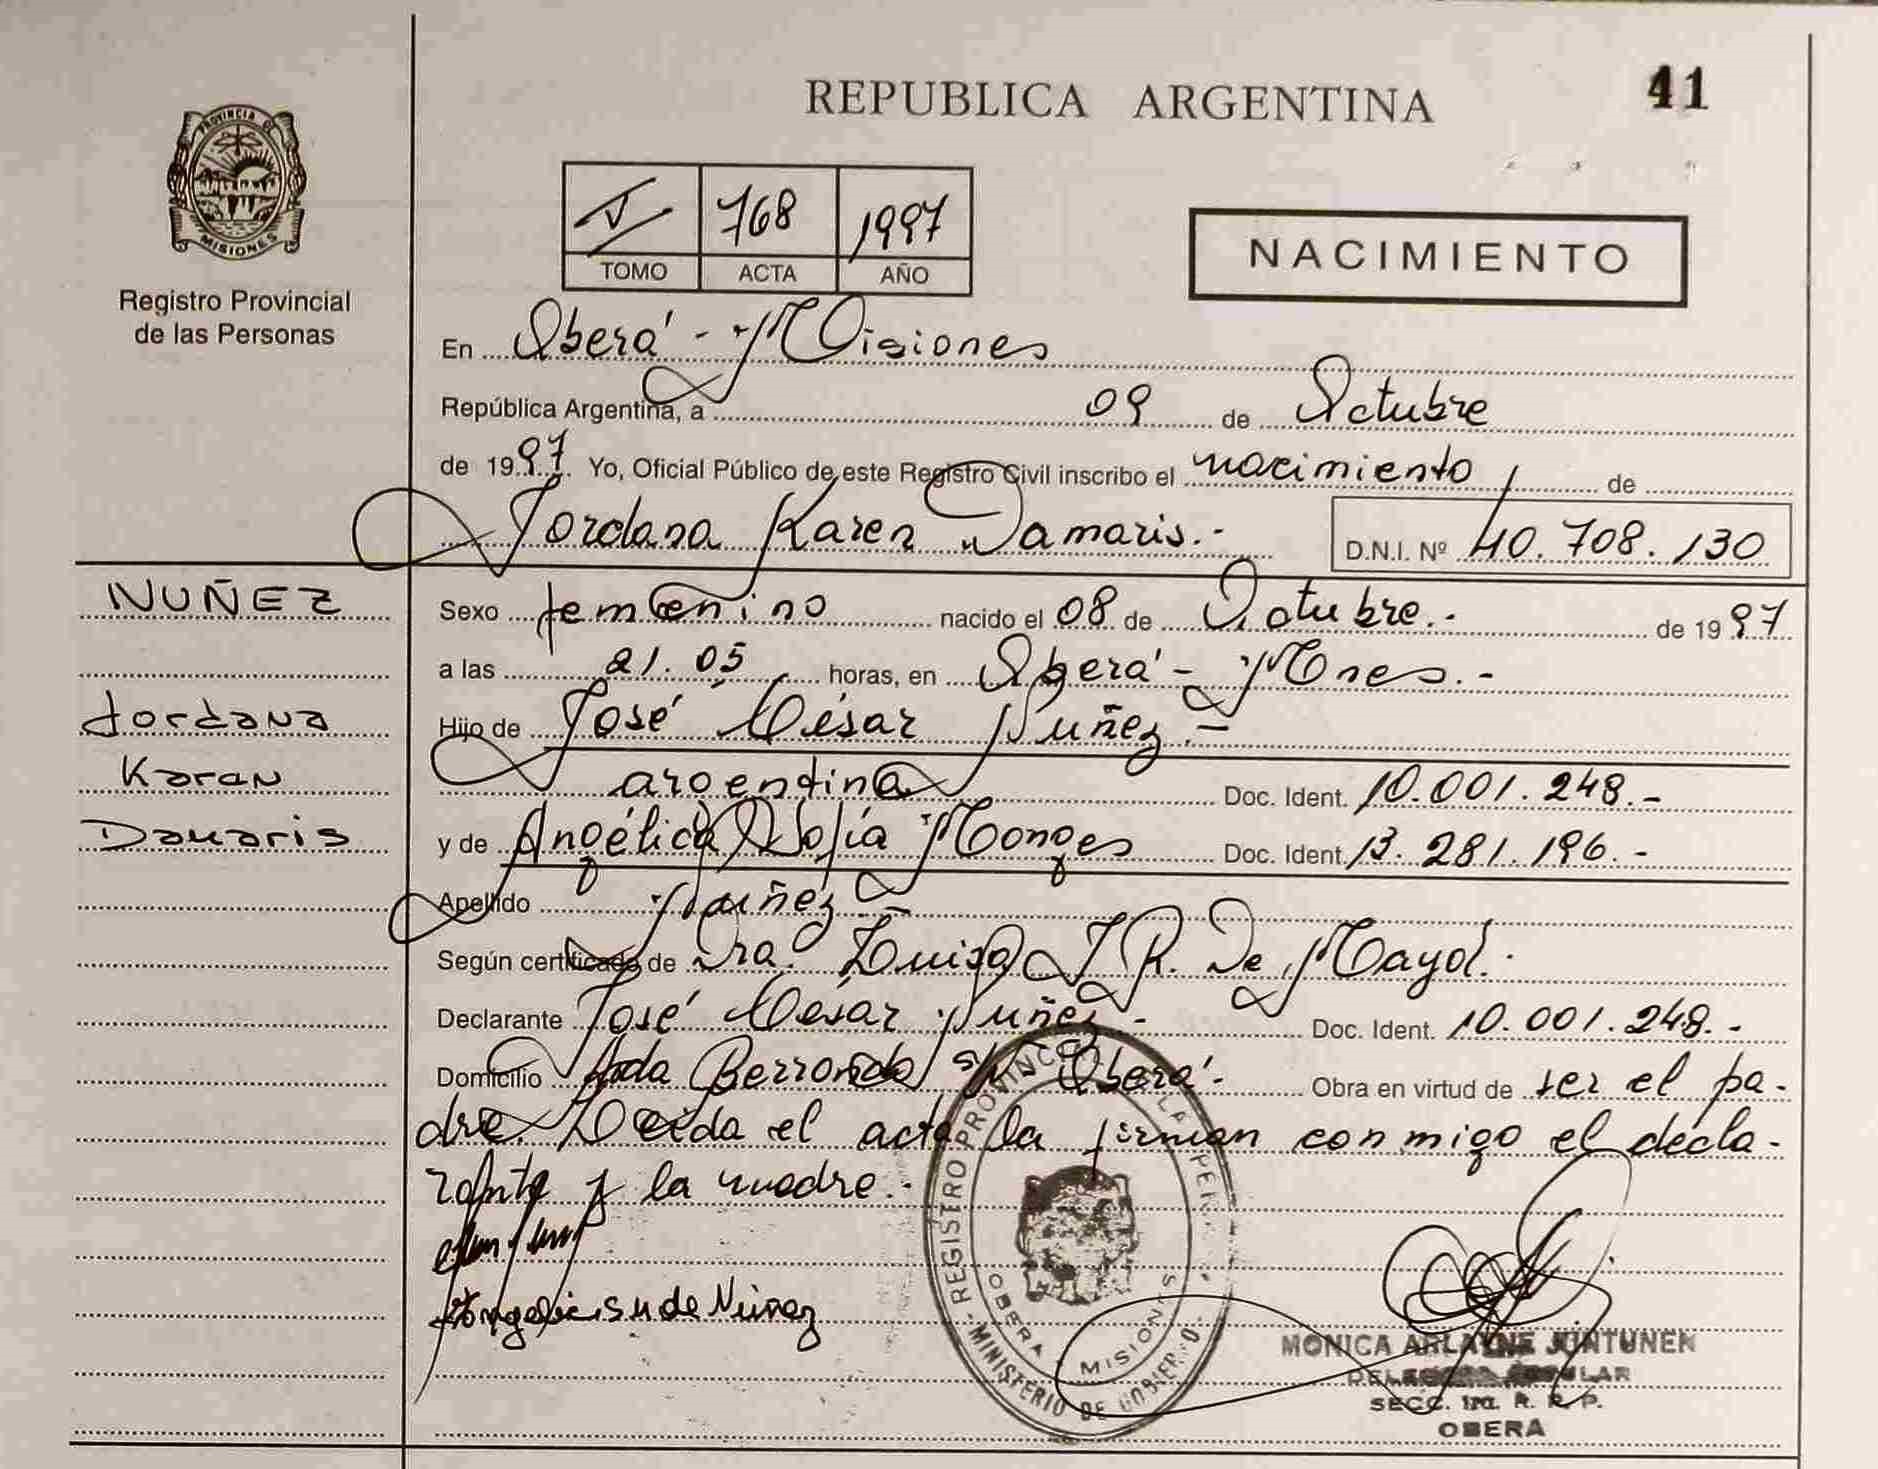 REPUBLICA ARGENTINA
41
PROVINCIA DE
MISIONES
Registro Provincial
de las Personas
I 768 1997
TOMO ACTA AÑO
NACIMIENTO
En Oberá - Misiones
República Argentina, a 09 de Octubre
de 1997. Yo, Oficial Público de este Registro Civil inscribo el nacimiento de
Jordana Karen Damaris.-
D.N.I. Nº 40.708.130
NUÑEZ
Jordana
Karen
Damaris
Sexo femenino nacido el 08 de Octubre.- de 1997
a las 21.05 horas, en Oberá - Mnes.-
Hijo de José César Nuñez.-
argentina Doc. Ident. 10.001.248.-
y de Angélica Sofía Monges Doc. Ident. 13.281.196.-
Apellido Nuñez -
Según certificado de Dra. Luisa J R. De Mayol.-
Declarante José César Nuñez - Doc. Ident. 10.001.248.-
Domicilio Avda Berrondo s/n Oberá.- Obra en virtud de ser el pa-
dre. Leída el acta la firman conmigo el decla-
rante y la madre.-
de Núñez
REGISTRO PROVINCIAL DE LAS PERSONAS
OBERA MISIONES
MINISTERIO DE GOBIERNO
MONICA ARLAYNE JUNTUNEN
SECC. 1ra. R. P. P.
OBERA